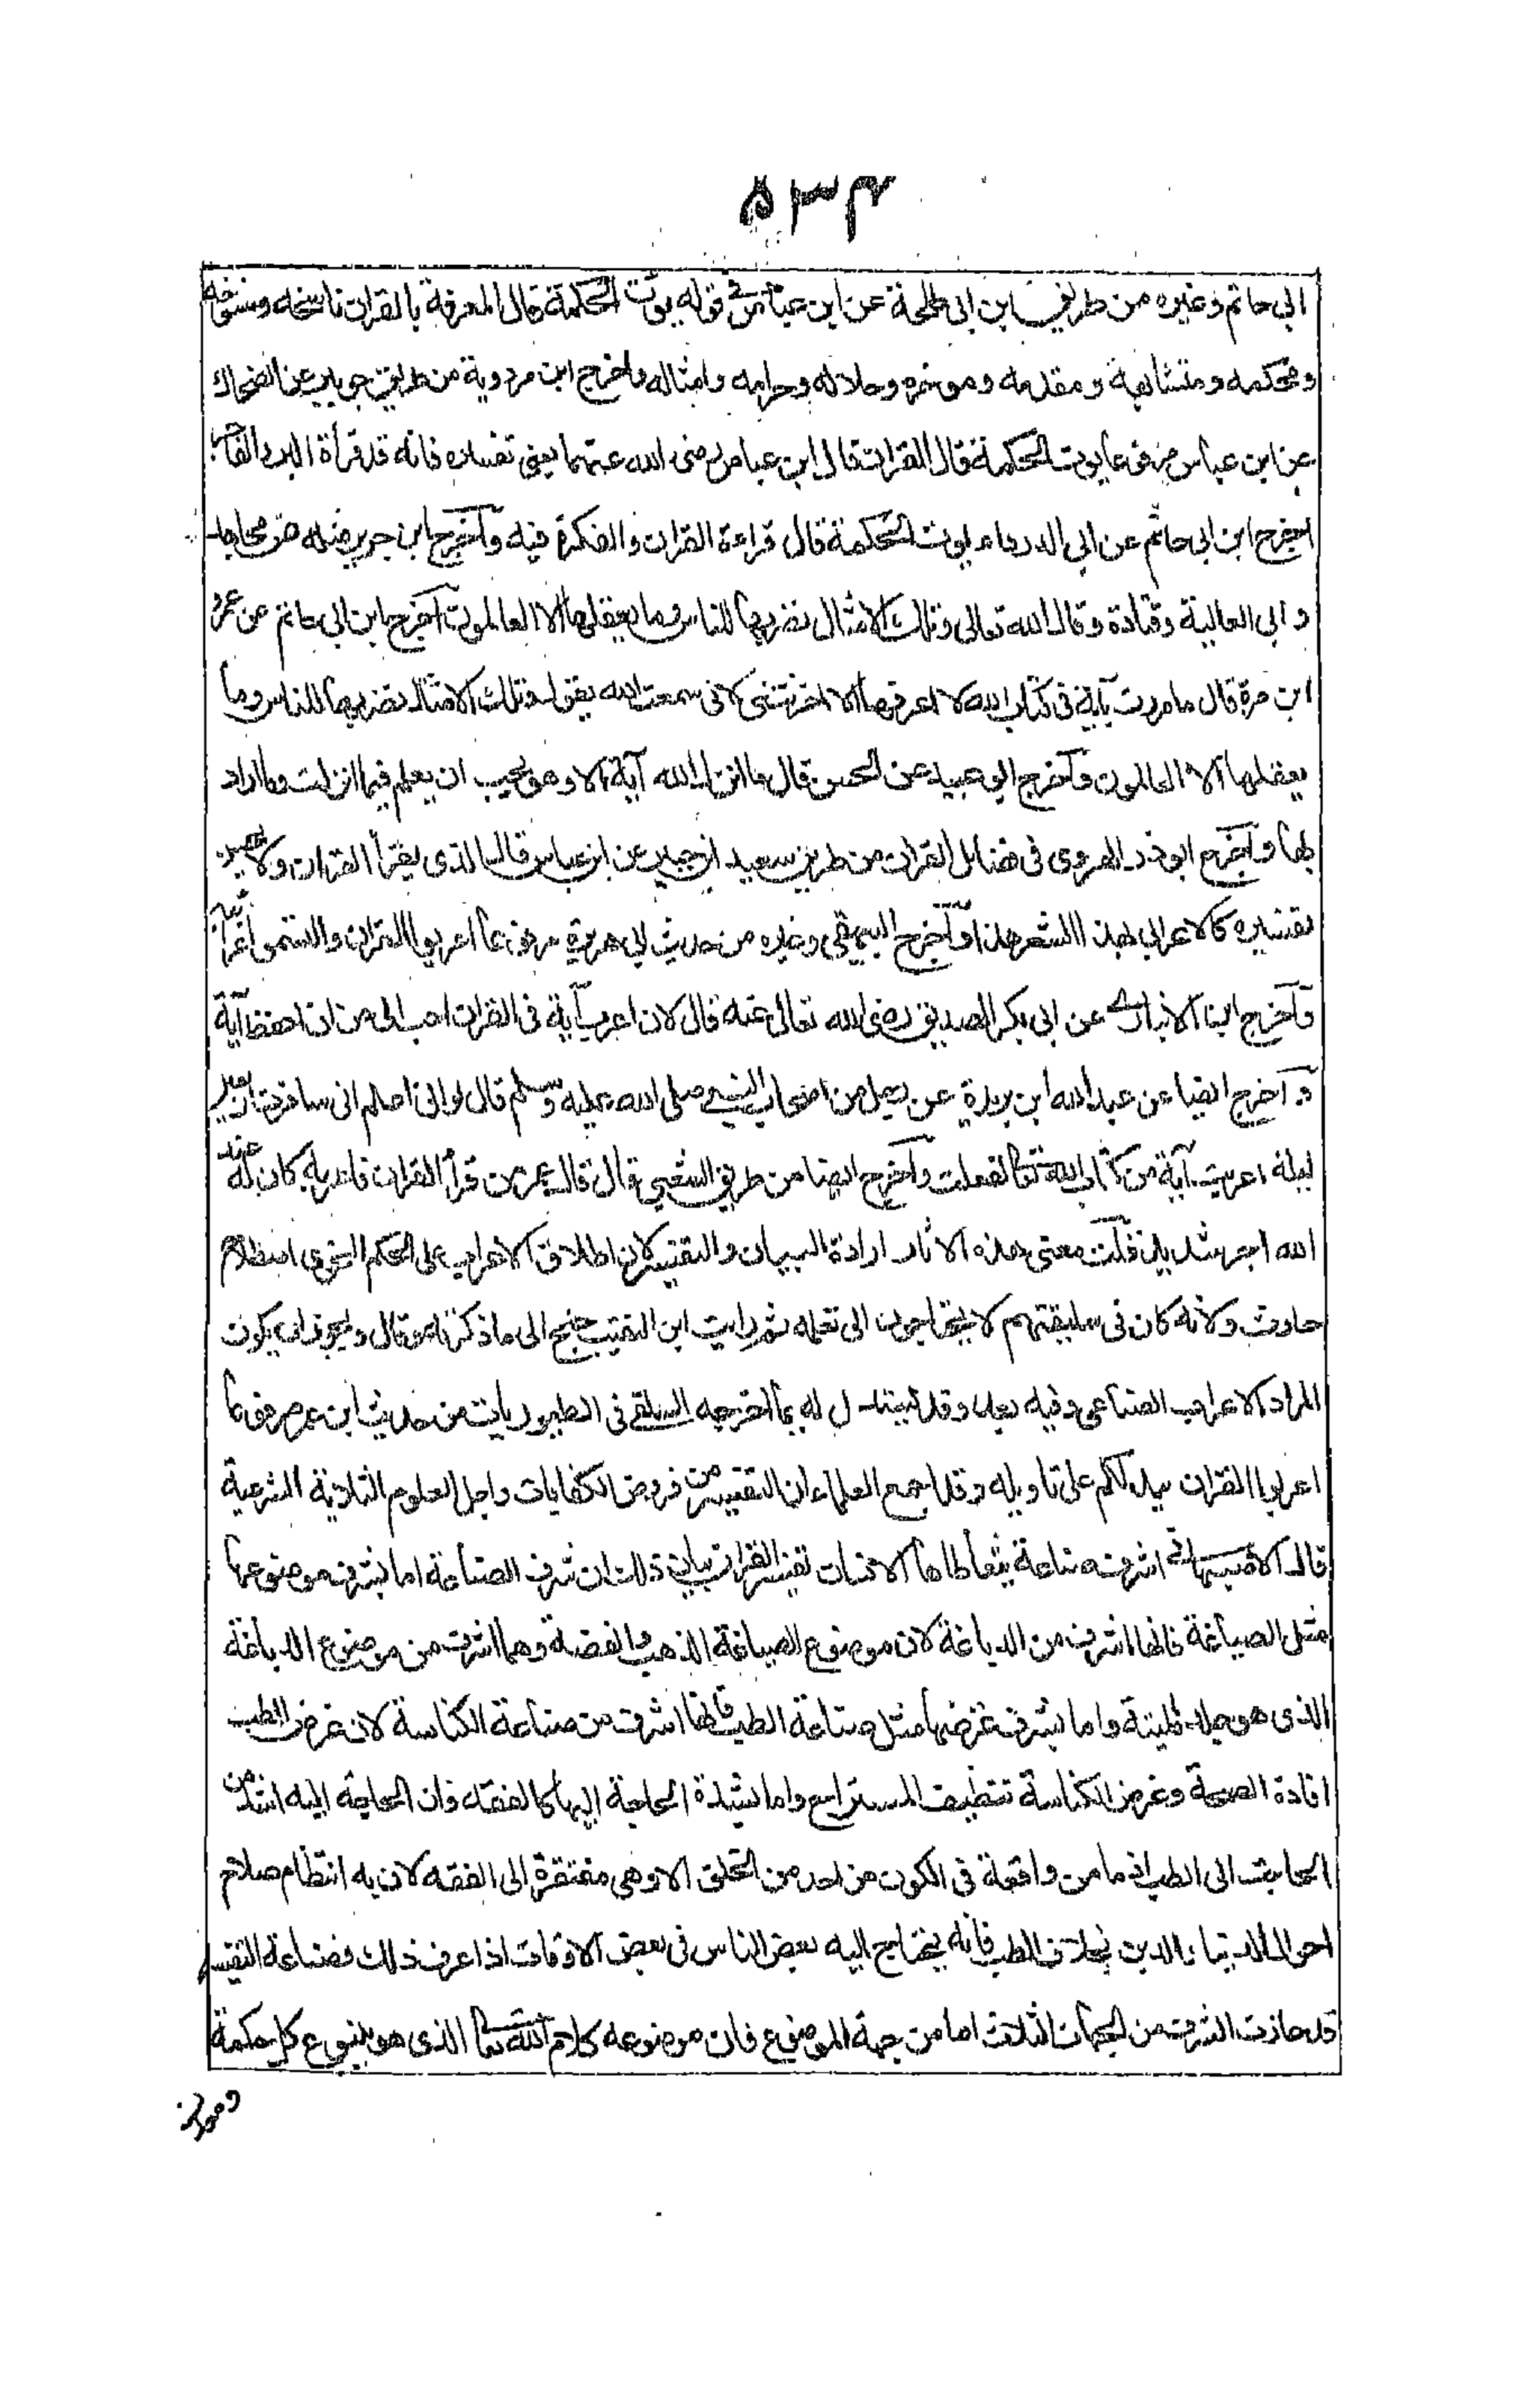 ۵۳۴
ابى حاتم وغيره من طريق ابن ابى طلحة عن ابن عباس فى قوله يوت الحكمة قال المعرفة بالقران ناسخه ومنسوخه
ومحكمه ومتشابهه ومقدمه وموخره وحلاله وحرامه وامثاله واخرج ابن مردوية من طريق جويبر عن الضحاك
عن ابن عباس مرفوعا يوت الحكمة قال القران قال ابن عباس رضى الله عنهما يعنى تفسيره فانه قد قرأة البر والفاجر
اخرج ابن ابى حاتم عن ابى الدرداء يوت الحكمة قال قراءة القران والفكرة فيه وآخرج ابن جرير مثله عن مجاهد
و ابى العالية وقتادة وقال الله تعالى وتلك الامثال نضربها للناس وما يعقلها الا العالمون آخرج ابن ابى حاتم عن عمرو
ابن مرة قال ما مررت بآية فى كتاب الله لا اعرفها الا احزنتنى لانى سمعت الله يقول وتلك الامثال نضربها للناس وما
يعقلها الا العالمون وآخرج ابى عبيد عن الحسن قال ما انزل الله آية الا وهو يحب ان يعلم فيما انزلت وما اراد
بها وآخرج ابوذر الهروى فى فضايل القران من طريق سعيد ابن جبير عن ابن عباس قال الذى يقرأ القران ولا يحسن
تفسيره كالاعرابى يهذ الشعر هذا وآخرج البيهقى وغيره من حديث ابى هريرة مرفوعا اعربوا القران والتمسوا غرائبه
وآخرج ابن الانبارى عن ابى بكر الصديق رضى الله تعالى عنه قال لان اعرب آية فى القران احب الى من ان احفظ آية
وآخرج ايضا عن عبد الله ابن بريدة عن رجل من اصحاب النبى صلى الله عليه وسلم قال لو انى اعلم انى سافرت اربعين
ليلة اعربت آية من كتاب الله تعا لفعلت وآخرج ايضا من طريق الشعبى قال قال عمر من قرأ القران فاعربه كان له عند
الله اجر شهيد قلت معنى هذه الاثار ارادة البيان والتفسير لان اطلاق الاعراب على الحكم النحوى اصطلاح
حادث ولانه كان فى سليقتهم لا يحتاجون الى تعلمه ثم رايت ابن النقيب جنح الى ما ذكرته وقال ويجوز ان يكون
المراد الاعراب الصناعى وفيه بعد وقد يستدل له بما اخرجه السلفى فى الطيوريات من حديث ابن عمر مرفوعا
اعربوا القران يدلكم على تاويله وقد اجمع العلماء ان التفسير من فروض الكفايات واجل العلوم الثلاثة الشرعية
قال الاصبهانى اشرف صناعة يتعاطاها الانسان تفسير القران بيان ذلك ان شرف الصناعة اما بشرف موضوعها
مثل الصياغة فانها اشرف من الدباغة لان موضوع الصياغة الذهب والفضة وهما اشرف من موضوع الدباغة
الذى هو جلد الميتة واما بشرف غرضها مثل صناعة الطب فانها اشرف من صناعة الكناسة لان غرض الطب
افادة الصحة وغرض الكناسة تنظيف المستراح واما بشدة الحاجة اليها كالفقه فان الحاجة اليه اشد من
الحاجة الى الطب اذ ما من واقعة فى الكون من احد من الخلق الا وهى مفتقرة الى الفقه لان به انتظام صلاح
احوال الدنيا والدين بخلاف الطب فانه يحتاج اليه بعض الناس فى بعض الاوقات اذا عرف ذلك فصناعة التفسير
قد حازت الشرف من الجهات الثلاث اما من جهة الموضوع فان موضوعه كلام الله تعا الذى هو ينبوع كل حكمة